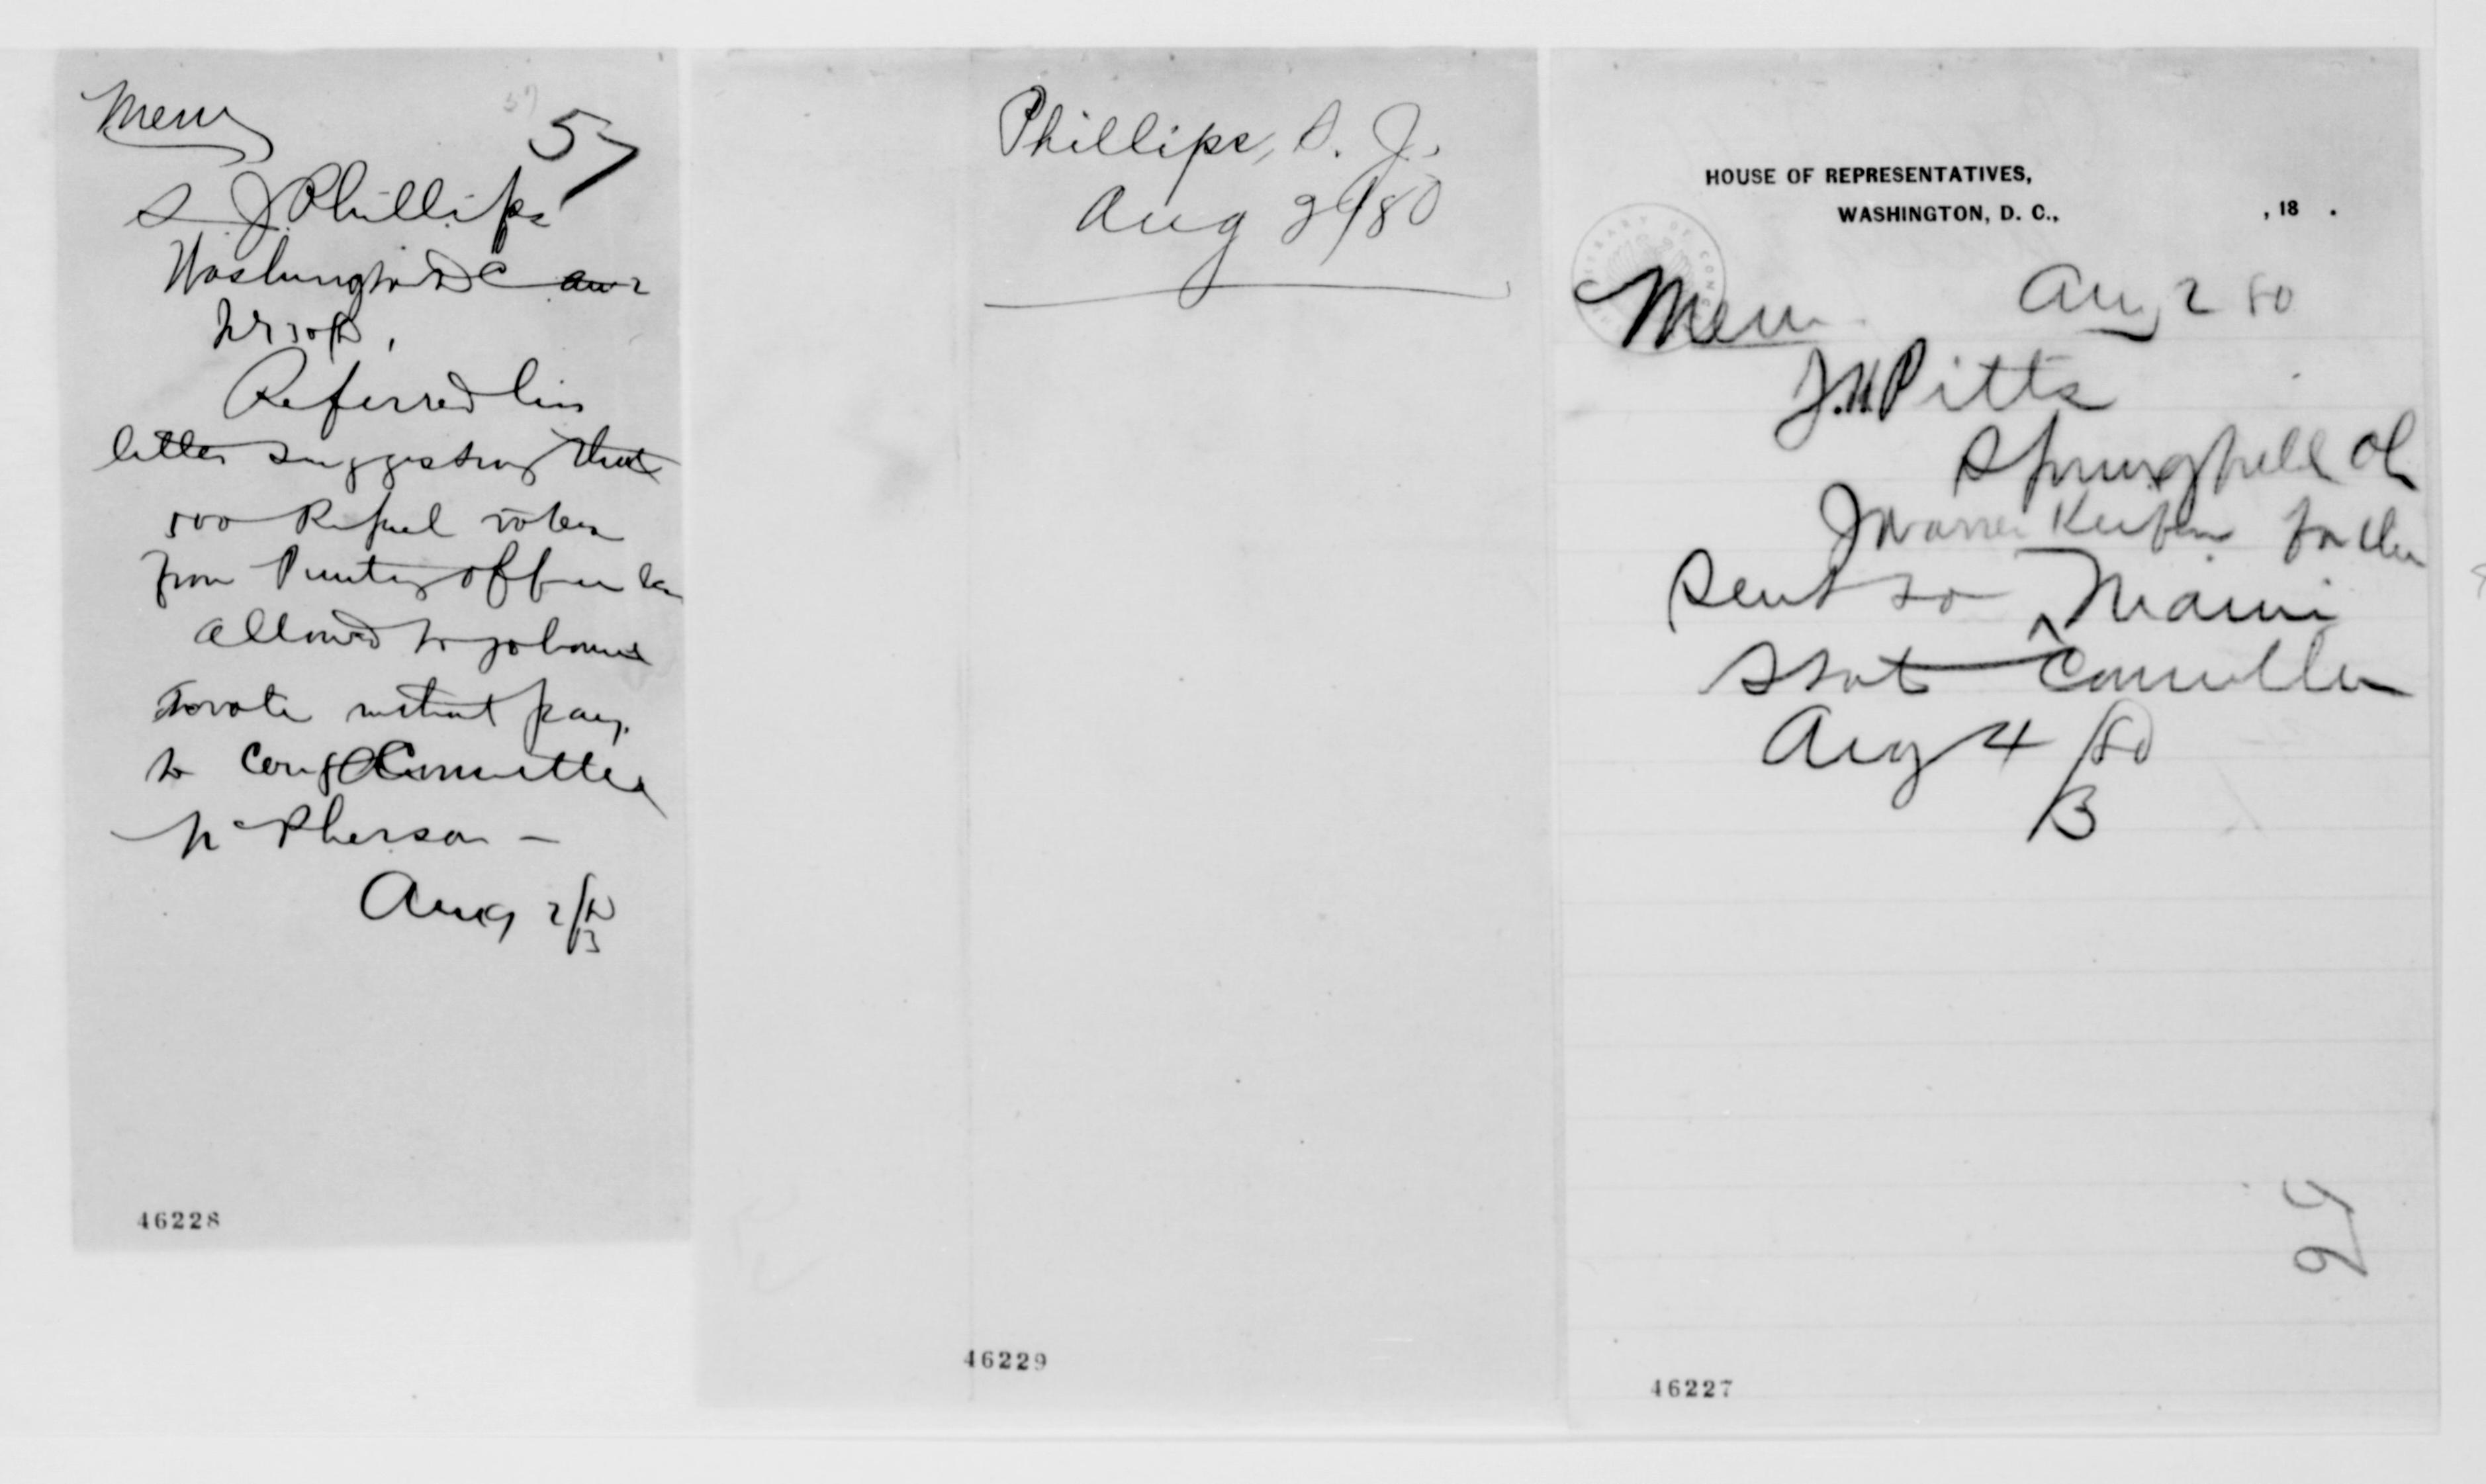 Mem
57
S. J. Phillips
Washington D C Aug 2
Referred his
letter suggesting that
500 Repub voters
from Printing office be
allowed to go home
to vote without pay.
to Cong Committee
McPherson —
Aug 2/80
B
46228
Phillips, S. J.
Aug 2/80
46229
HOUSE OF REPRESENTATIVES,
WASHINGTON, D. C., , 18 .
Mem Aug 2 80
J. H. Pitts
Springhill
J Warren Keifer
Sent to Maine
State Committee
Aug 4/80
B
46227